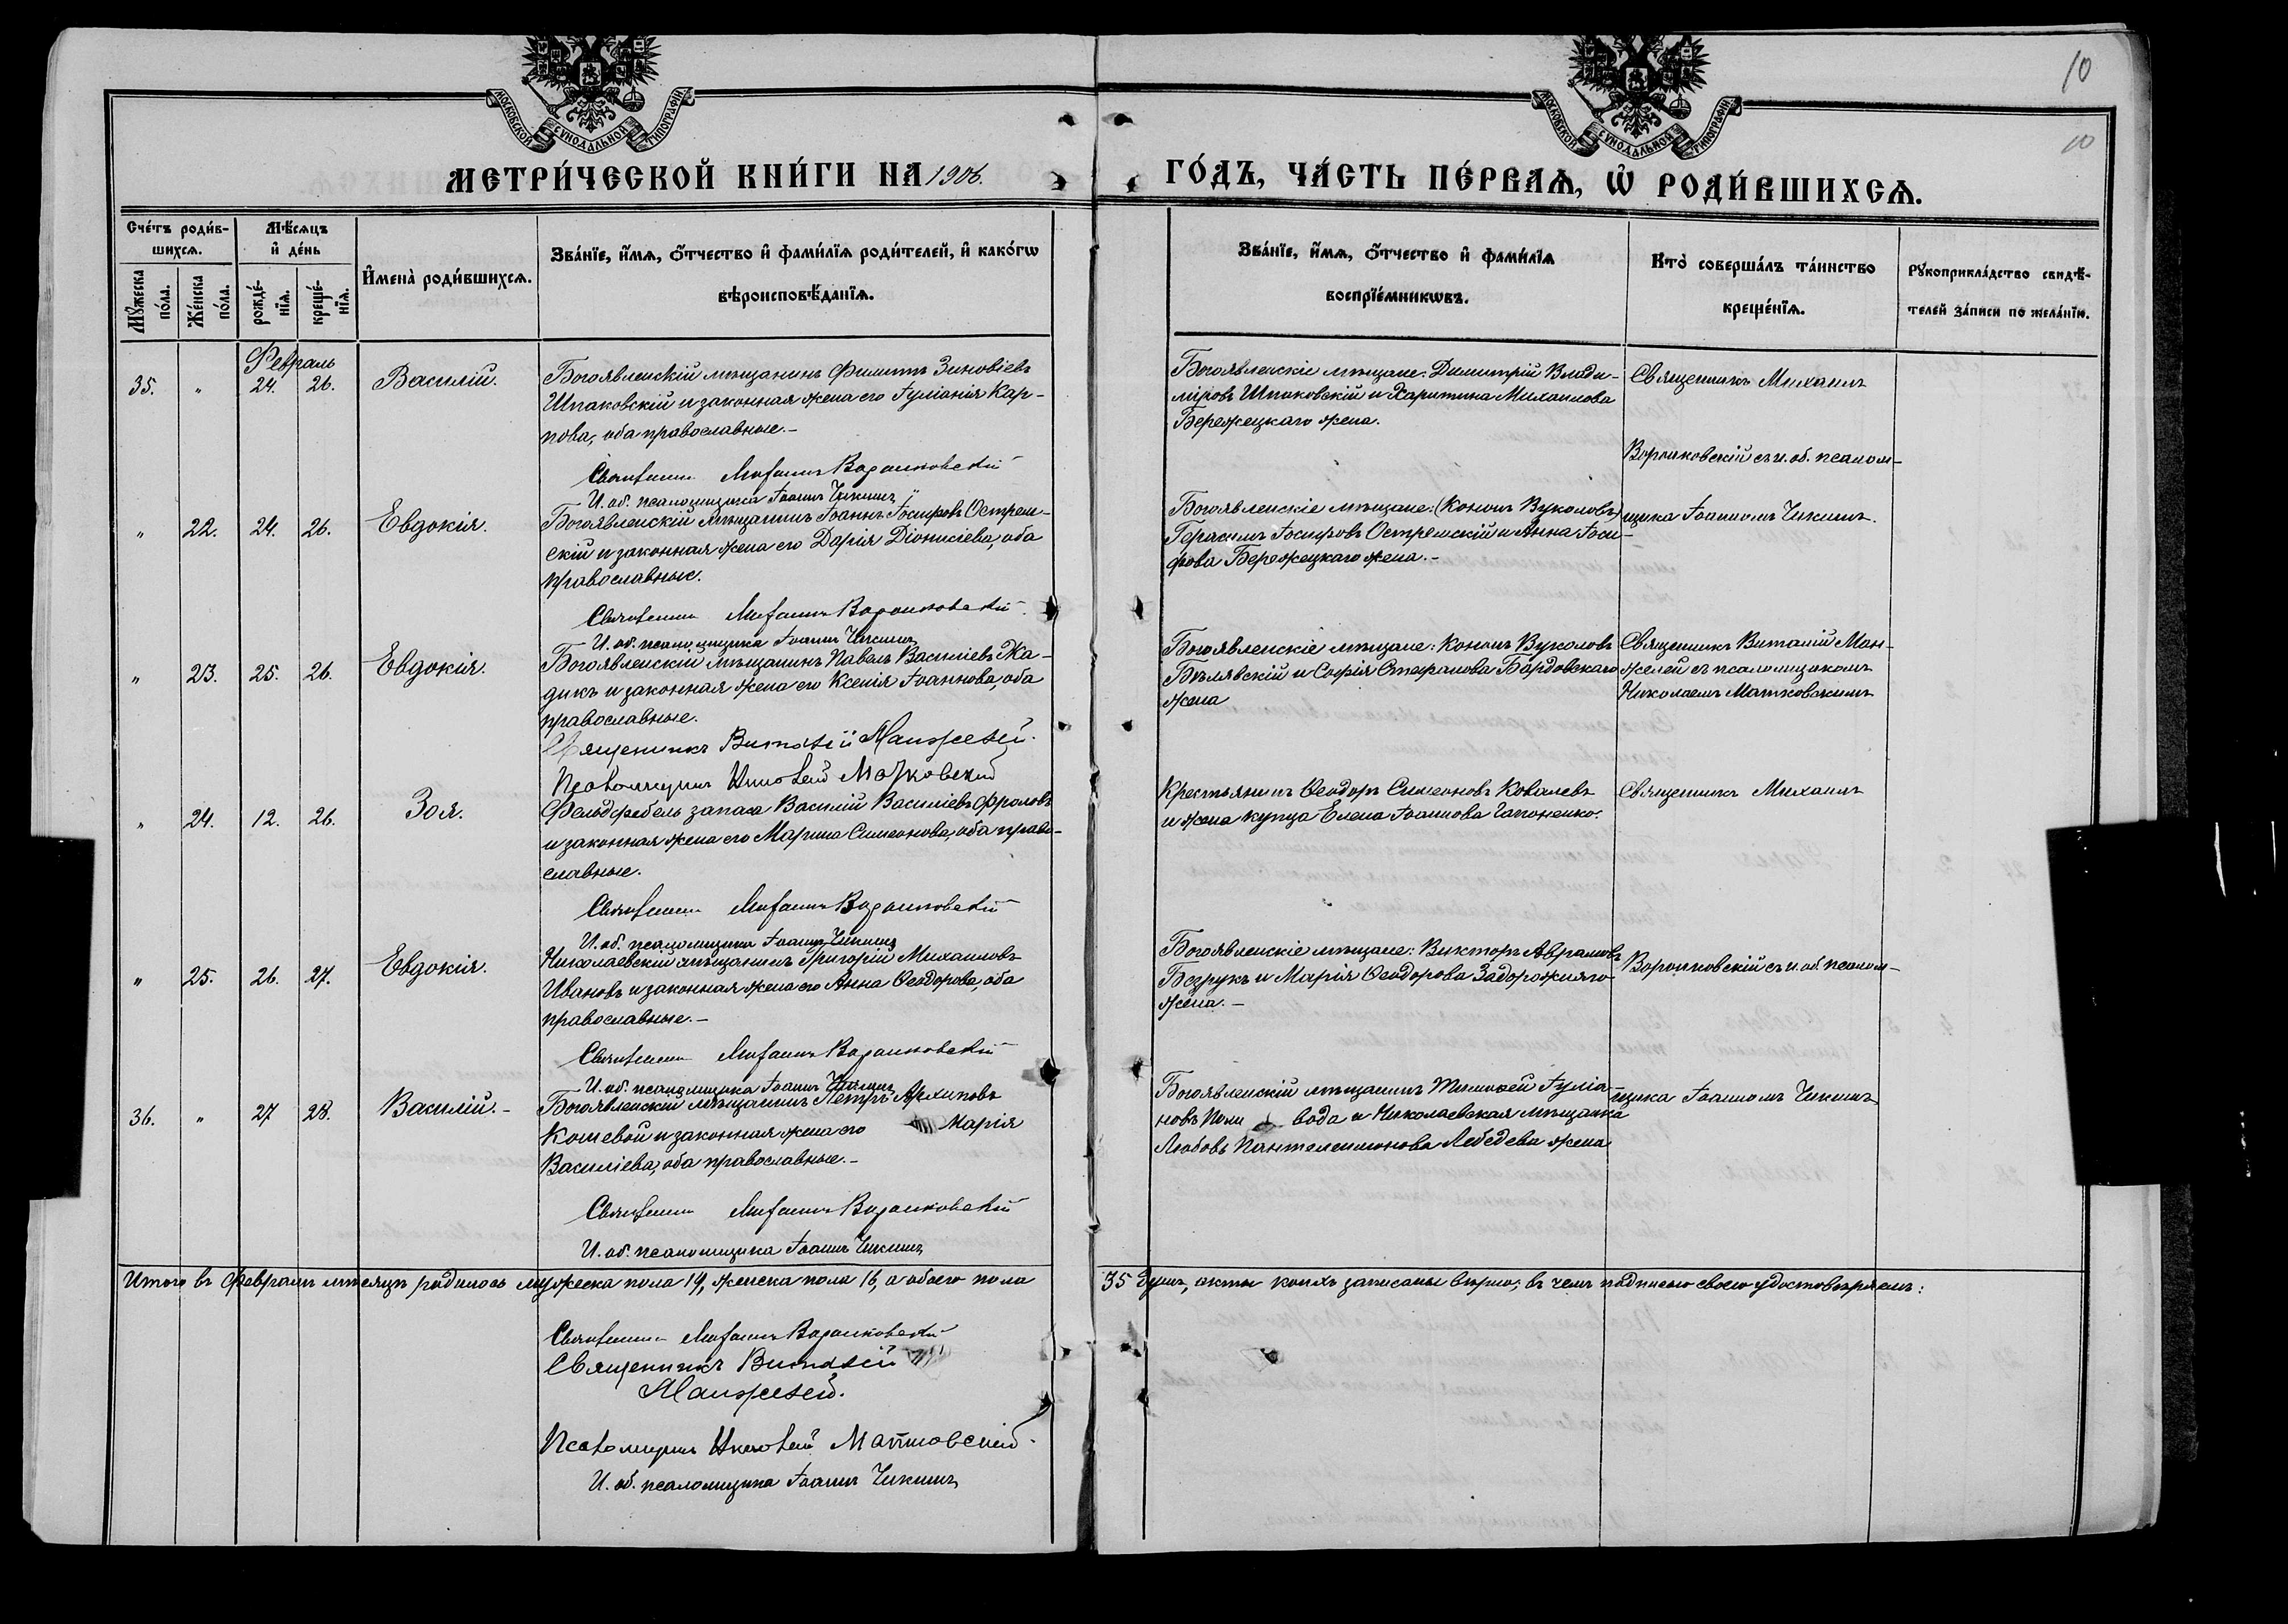 10
10
МОСКОВСКОЙ СѴНОДАЛЬНОЙ ТИПОГРАФІИ
МОСКОВСКОЙ СѴНОДАЛЬНОЙ ТИПОГРАФІИ
МЕТРИ́ЧЕСКОЙ КНИ́ГИ НА 1906. ГО́ДЪ, ЧА́СТЬ ПЕ́РВАѦ, Ѽ РОДИ́ВШИХСѦ.
Сче́тъ роди́в-
шихсѧ.
Мѣ́сѧцъ
и де́нь
Мꙋ́жеска
по́ла.
Же́нска
по́ла.
рожде́-
нїѧ.
креще́-
нїѧ.
Имена̀ роди́вшихсѧ.
Зва́нїе, и́мѧ, о́тчество и фами́лїѧ роди́телей, и како́гѡ
вѣроисповѣ́данїѧ.
Зва́нїе, и́мѧ, о́тчество и фами́лїѧ
воспрїе́мникѡвъ.
Кто̀ соверша́лъ та́инство
креще́нїѧ.
Рꙋкоприкла́дство свидѣ́-
телей за́писи по жела́нїю.
Февраль
35. " 24. 26. Василій.
Богоявленскій мѣщанинъ Филиппъ Зиновіевъ
Шпаковскій и законная жена его Іуліанія Кар-
пова, оба православные.-
Священникъ Михаилъ Воронковскій
И. об. псаломщика Іоаннъ Чикинъ
Богоявленскіе мѣщане: Димитрій Влади-
міровъ Шпаковскій и Харитина Михаилова
Бережецкаго жена.
Священникъ Михаилъ
Воронковскій съ и. об. псалом-
" 22. 24. 26. Евдокія.
Богоявленскій мѣщанинъ Іоаннъ Іосифовъ Острем-
скій и законная жена его Дарія Діонисіева, оба
православные.
Священникъ Михаилъ Воронковскій
И. об. псаломщика Іоаннъ Чикинъ
Богоявленскіе мѣщане: (Кононъ Вуколовъ)
Герасимъ Іосифовъ Остремскій и Анна Іоси-
фова Бережецкаго жена.-
щика Іоанномъ Чикинъ.
" 23. 25. 26. Евдокія.
Богоявленскій мѣщанинъ Павелъ Василіевъ Жа-
дикъ и законная жена его Ксенія Іоаннова, оба
православные.
Священникъ Виталій Манжелей.
Псаломщикъ Николай Матковскій
Богоявленскіе мѣщане: Кононъ Вуколовъ
Бѣлявскій и Софія Стефанова Бордовскаго
жена
Священникъ Виталій Ман-
желей съ псаломщикомъ
Николаемъ Матковскимъ
" 24. 12. 26. Зоя.
Фельдфебель запаса Василій Василіевъ Фроловъ
и законная жена его Марина Симеонова, оба право-
славные.
Священникъ Михаилъ Воронковскій
И. об. псаломщика Іоаннъ Чикинъ
Крестьянинъ Ѳеодоръ Симеоновъ Ковалевъ
и жена купца Елена Іоаннова Гапоненко.
Священникъ Михаилъ
" 25. 26. 27. Евдокія.
Николаевскій мѣщанинъ Григорій Михаиловъ
Ивановъ и законная жена его Анна Ѳеодорова, оба
православные.-
Священникъ Михаилъ Воронковскій
И. об. псаломщика Іоаннъ Чикинъ
Богоявленскіе мѣщане: Викторъ Аврамовъ
Безрукъ и Марія Ѳеодорова Задорожняго
жена.-
Воронковскій съ и. об. псалом-
36. " 27 28. Василій.-
Богоявленскій мѣщанинъ Петръ Архиповъ
Кошевой и законная жена его Марія
Василіева, оба православные.-
Священникъ Михаилъ Воронковскій
И. об. псаломщика Іоаннъ Чикинъ
Богоявленскій мѣщанинъ Тимоѳей Іуліа-
новъ Поли вода и Николаевская мѣщанка
Любовь Пантелеимонова Лебедева жена
щика Іоанномъ Чикинъ
Итого въ Февралѣ мѣсяцѣ родилось мужеска пола 19, женска пола 16, а обоего пола 35 душъ, акты коихъ записаны вѣрно; въ чемъ подписью своею удостовѣряемъ:
Священникъ Михаилъ Воронковскій
Священникъ Виталій
Манжелей.
Псаломщикъ Николай Матковскій.
И. об. псаломщика Іоаннъ Чикинъ